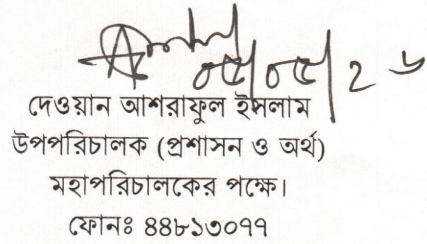 ০৫/০৫/২৬
দেওয়ান আশরাফুল ইসলাম
উপপরিচালক (প্রশাসন ও অর্থ)
মহাপরিচালকের পক্ষে।
ফোনঃ ৪৪৮১৩০৭৭